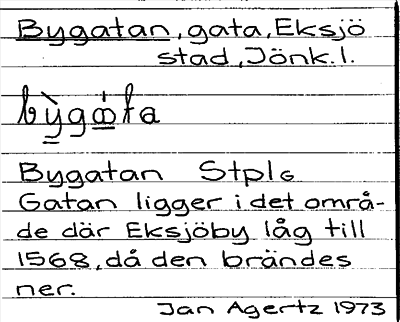 Bygatan, gata, Eksjö
stad, Jönk. l.
Bygatan Stpl
Gatan ligger i det områ-
de där Eksjöby låg till
1568, då den brändes
ner.
Jan Agertz 1973